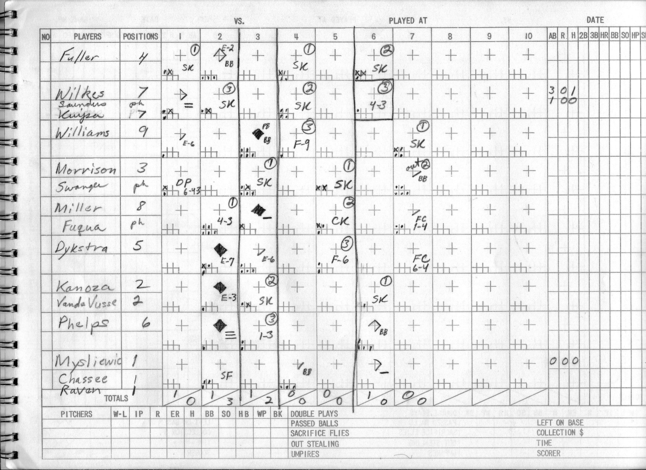 VS. PLAYED AT DATE
NO PLAYERS POSITIONS 1 2 3 4 5 6 7 8 9 10 AB R H 2B 3B HR BB SO HP
Fuller 4 1 SK E-2 BB 1 SK 2 SK
Wilkes 7 3 SK 2 SK 3 4-3 3 0 1
Saunders ph 1 0 0
Kuipa 7
Williams 9 E-6 BB 3 F-9 1 SK
Morrison 3 DP 6-43 1 SK 1 SK out 2 BB
Swanger ph
Miller 8 1 4-3 2 CK FC 1-4
Fuqua ph
Dykstra 5 E-7 E-6 3 F-6 FC 6-4
Kanoza 2 E-3 2 SK 1 SK
VandeVusse 2
Phelps 6 3 1-3 BB
Mysliewic 1 SF BB 0 0 0
Chassee 1
Raven 1
TOTALS 1/0 1/3 1/2 0/0 0/0 1/0 0/0
PITCHERS W-L IP R ER H BB SO HB WP BK DOUBLE PLAYS
PASSED BALLS LEFT ON BASE
SACRIFICE FLIES COLLECTION $
OUT STEALING TIME
UMPIRES SCORER